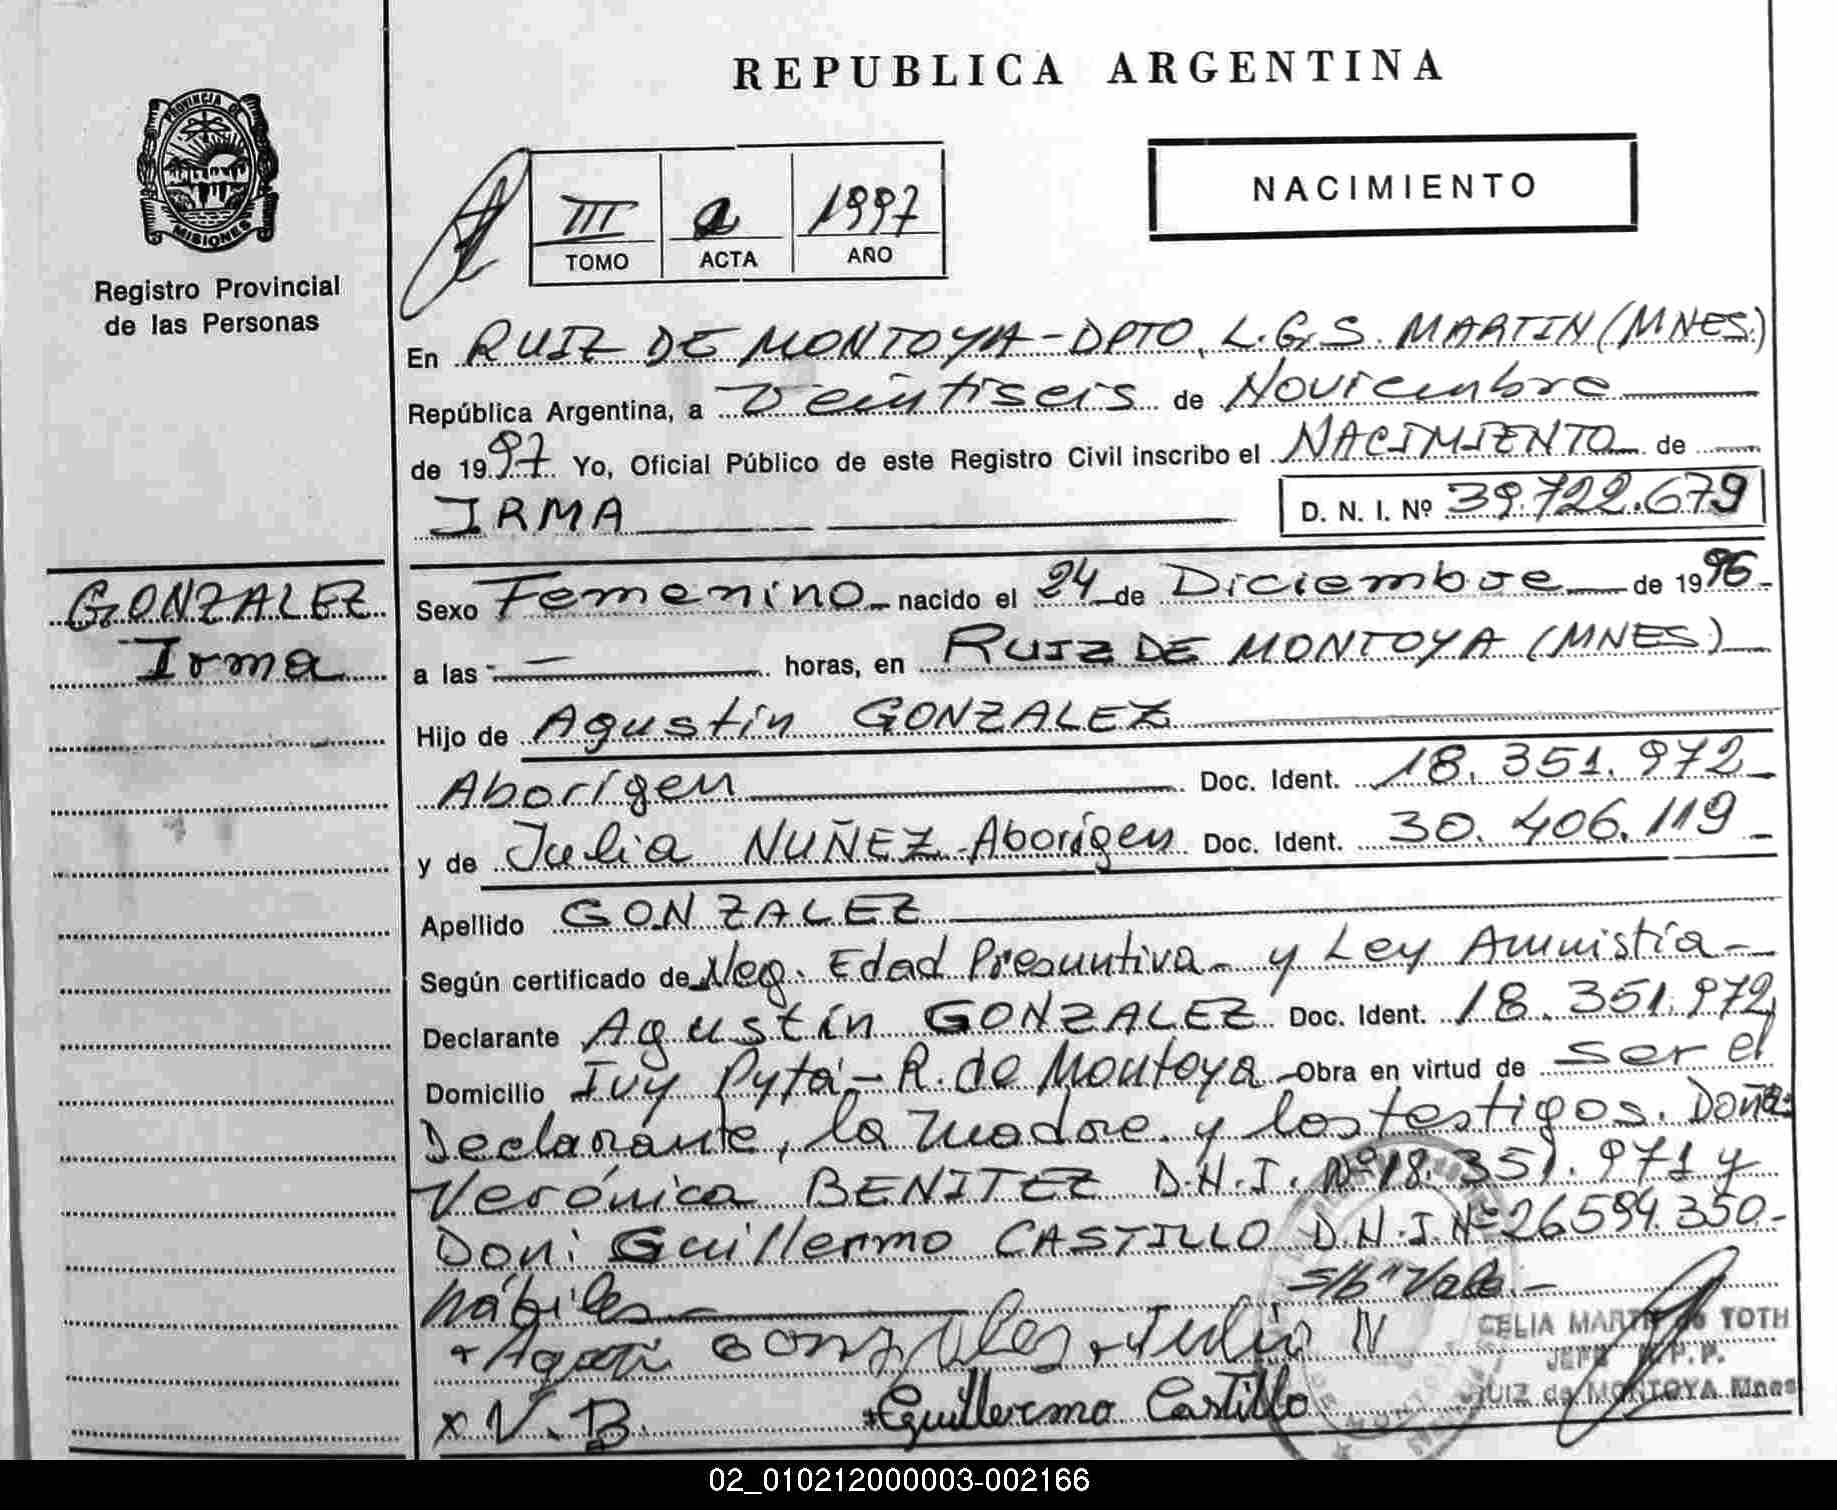 REPUBLICA ARGENTINA
PROVINCIA DE
MISIONES
Registro Provincial
de las Personas
III 1997
TOMO ACTA AÑO
NACIMIENTO
En RUIZ DE MONTOYA-DPTO. L.G.S. MARTIN (MNES.)
República Argentina, a Veintiseis de Noviembre
de 1997 Yo, Oficial Público de este Registro Civil inscribo el NACIMIENTO de
IRMA D. N. I. Nº 39.722.679
GONZALEZ
Irma
Sexo Femenino nacido el 24 de Diciembre de 1996
a las — horas, en RUIZ DE MONTOYA (MNES)
Hijo de Agustín GONZALEZ
Aborígen Doc. Ident. 18.351.972
y de Julia NUÑEZ-Aborígen Doc. Ident. 30.406.119
Apellido GONZALEZ
Según certificado de Neg. Edad Presuntiva- y Ley Amnistía-
Declarante Agustín GONZALEZ Doc. Ident. 18.351.972
Domicilio Ivy Pytá-R. de Montoya- Obra en virtud de ser el
Declarante, la madre y los testigos. Doña:
Verónica BENITEZ D.N.I. Nº 18.351.971 y
Don: Guillermo CASTILLO D.N.I. Nº 26584.350-
hábiles s/b" Vale.-
Julia N
CELIA de TOTH
JEFE R.P.P.
RUIZ de MONTOYA Mnes
x V.B. Guillermo Castillo
02_010212000003-002166